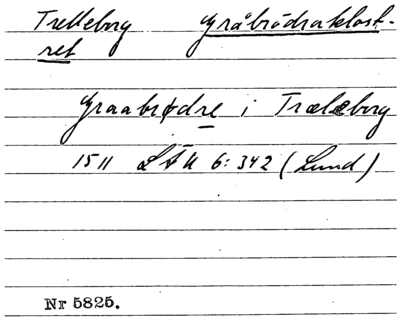 Trelleborg gråbrödraklost-
ret
graabrødre i Trælæborg
1511 LÄU 6:342 (Lund)
Nr 5825.